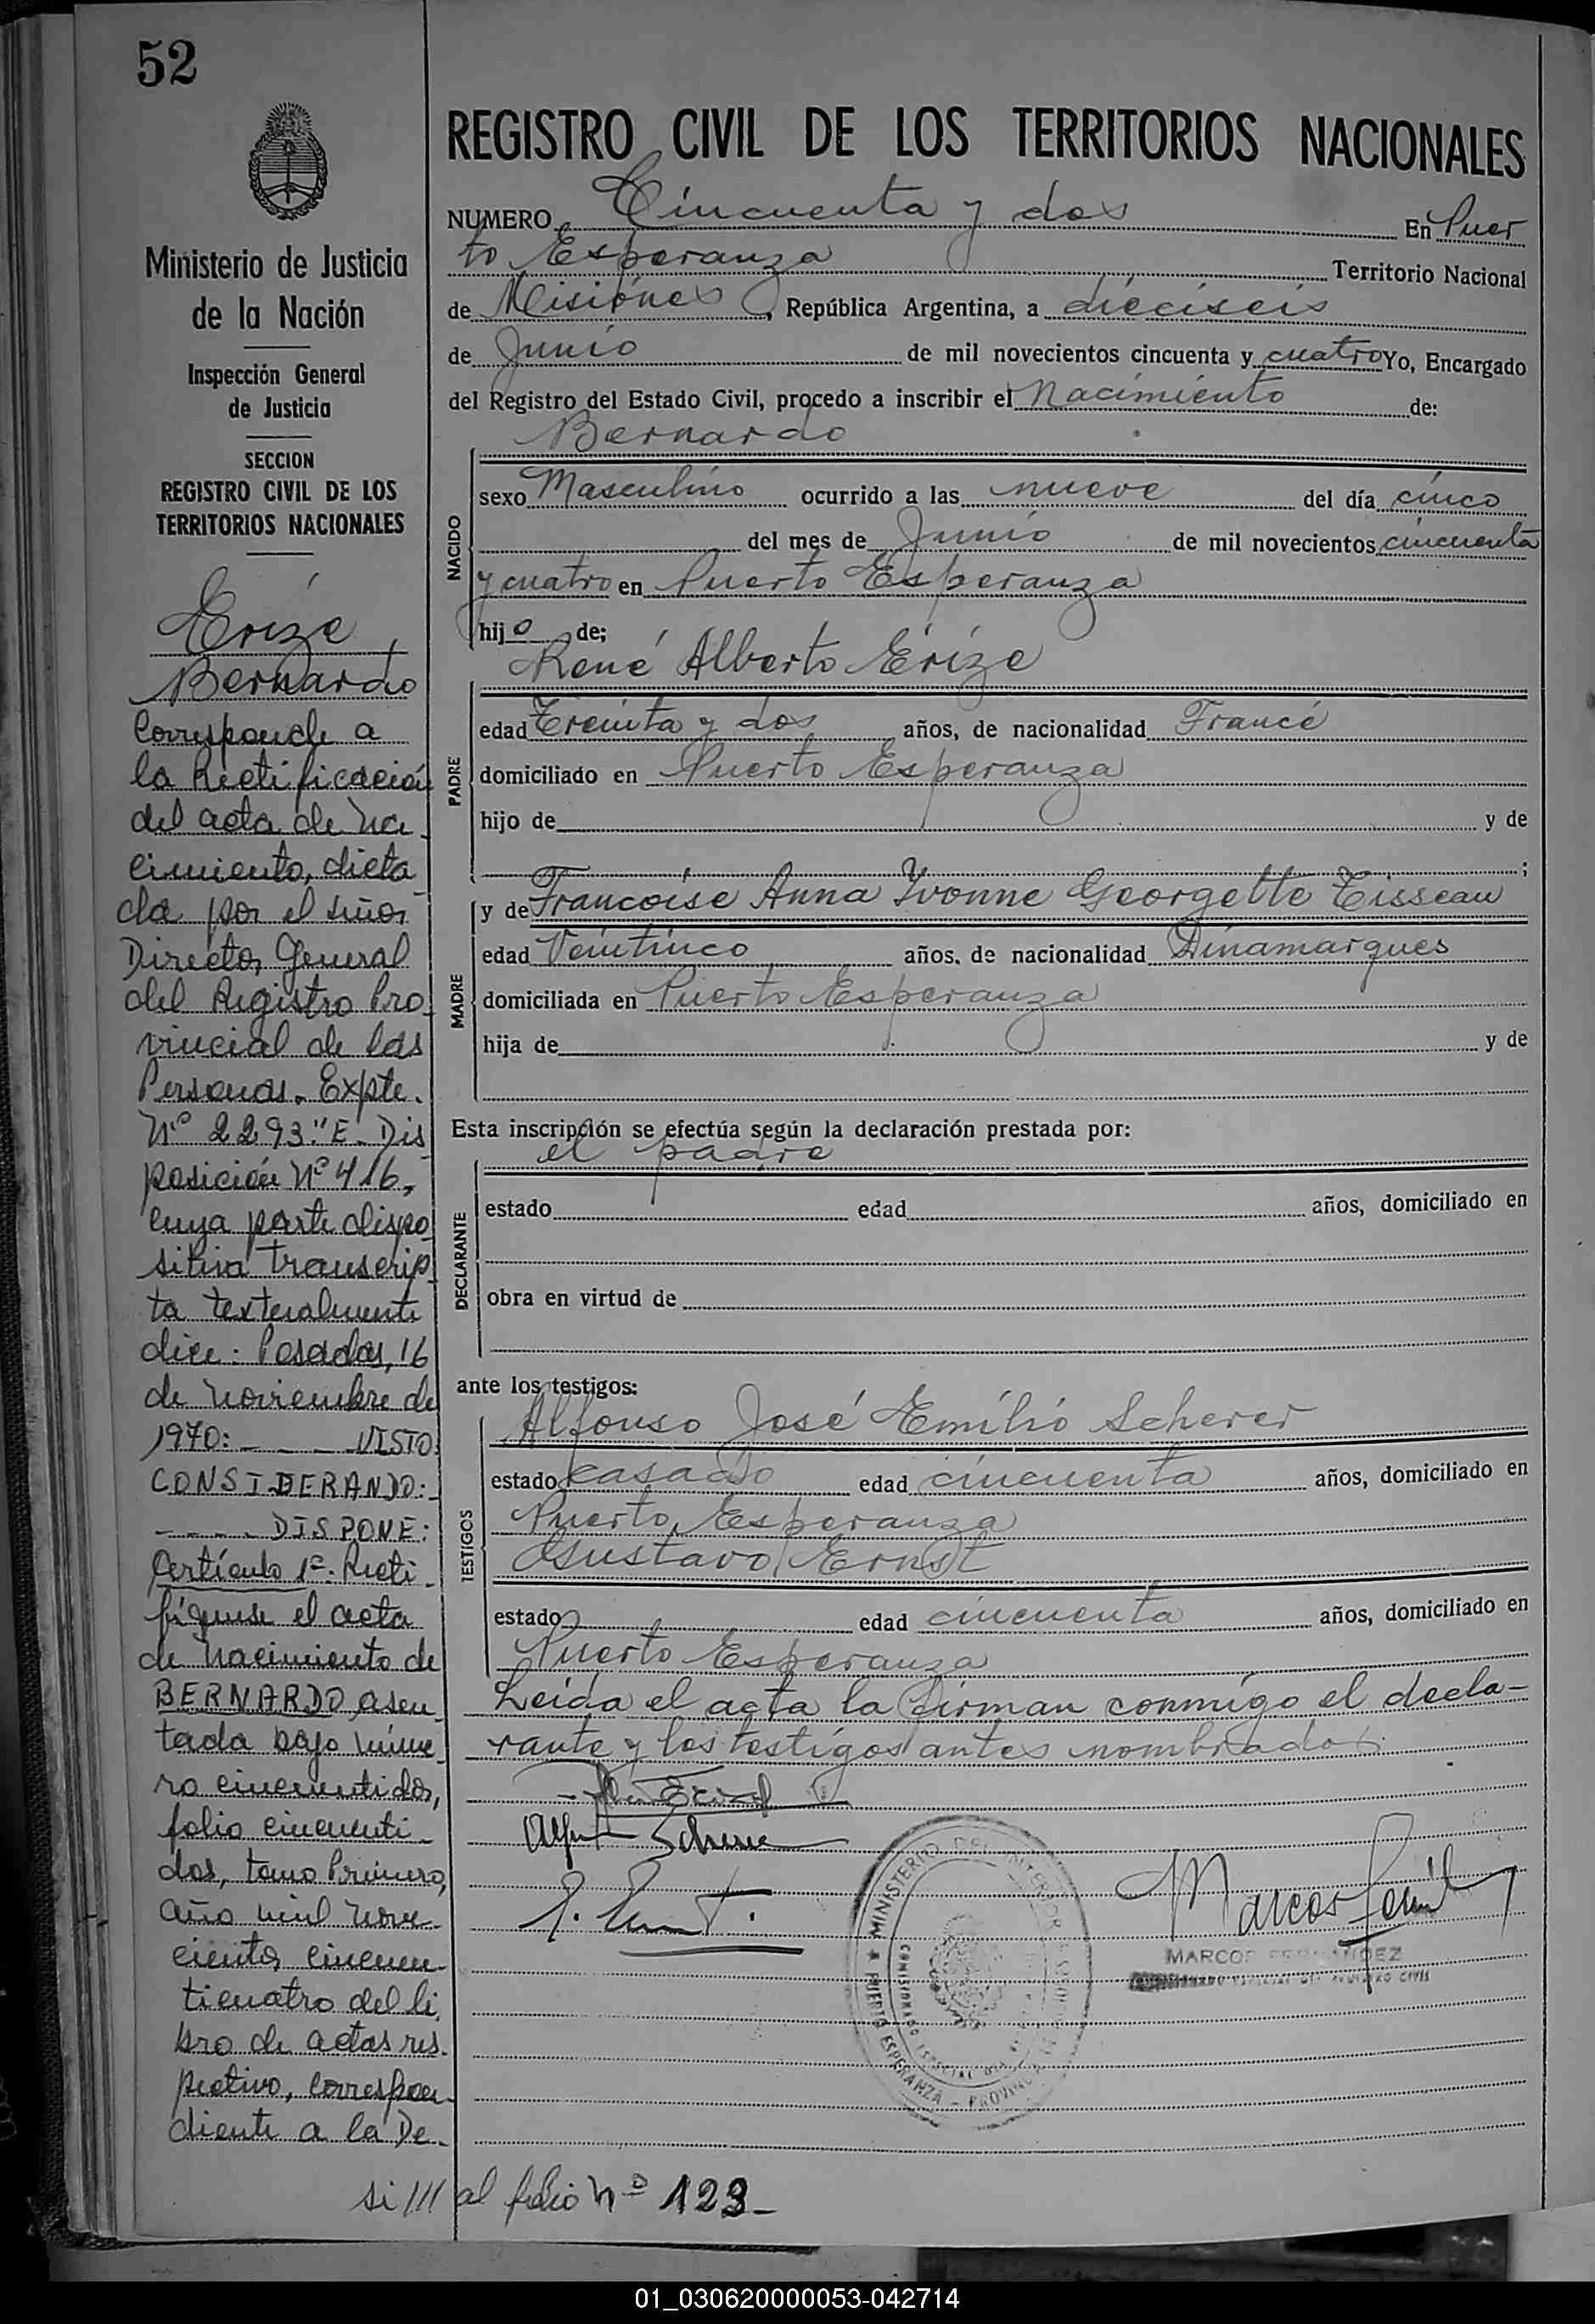 52
REGISTRO CIVIL DE LOS TERRITORIOS NACIONALES
NUMERO Cincuenta y dos En Puer
to Esperanza Territorio Nacional
de Misiones, República Argentina, a dieciseis
de Junio de mil novecientos cincuenta y cuatro Yo, Encargado
del Registro del Estado Civil, procedo a inscribir el Nacimiento de:
Bernardo
NACIDO
sexo Masculino ocurrido a las nueve del día cinco
del mes de Junio de mil novecientos cincuenta
y cuatro en Puerto Esperanza
hijo de;
René Alberto Erize
PADRE
edad Treinta y dos años, de nacionalidad Francé
domiciliado en Puerto Esperanza
hijo de y de
;
MADRE
y de Francoise Anna Yvonne Georgette Tisseau
edad Veinticinco años. de nacionalidad Dinamarques
domiciliada en Puerto Esperanza
hija de y de
Esta inscripción se efectúa según la declaración prestada por:
el padre
DECLARANTE
estado edad años, domiciliado en
obra en virtud de
ante los testigos:
TESTIGOS
Alfonso José Emilio Scherer
estado casado edad cincuenta años, domiciliado en
Puerto Esperanza
Gustavo Ernst
estado edad cincuenta años, domiciliado en
Puerto Esperanza
Leida el acta la firman conmigo el decla-
rante y los testigos antes nombrados
MARCOS FERNANDEZ
MINISTERIO DEL INTERIOR
PUERTO ESPERANZA
Ministerio de Justicia
de la Nación
Inspección General
de Justicia
SECCION
REGISTRO CIVIL DE LOS
TERRITORIOS NACIONALES
Erize,
Bernardo
Corresponde a
la Rectificación
del acta de na-
cimiento, dicta-
da por el señor
Director General
del Registro Pro-
vincial de las
Personas. Expte.
Nº 2293."E". Dis
posición Nº 416,
cuya parte dispo
sitiva transcrip
ta textualmente
dice: Posadas, 16
de noviembre de
1970: - - - VISTO:
CONSIDERANDO:
- - - - DISPONE:
Artículo 1º: Recti-
fíquese el acta
de nacimiento de
BERNARDO, asen
tada bajo núme-
ro cincuentidós,
folio cincuenti-
dos, tomo Primero,
año mil nove-
cientos cincuen-
ticuatro del li
bro de actas res-
pectivo, correspon-
diente a la De-
si /// al folio nº 123-
01_030620000053-042714